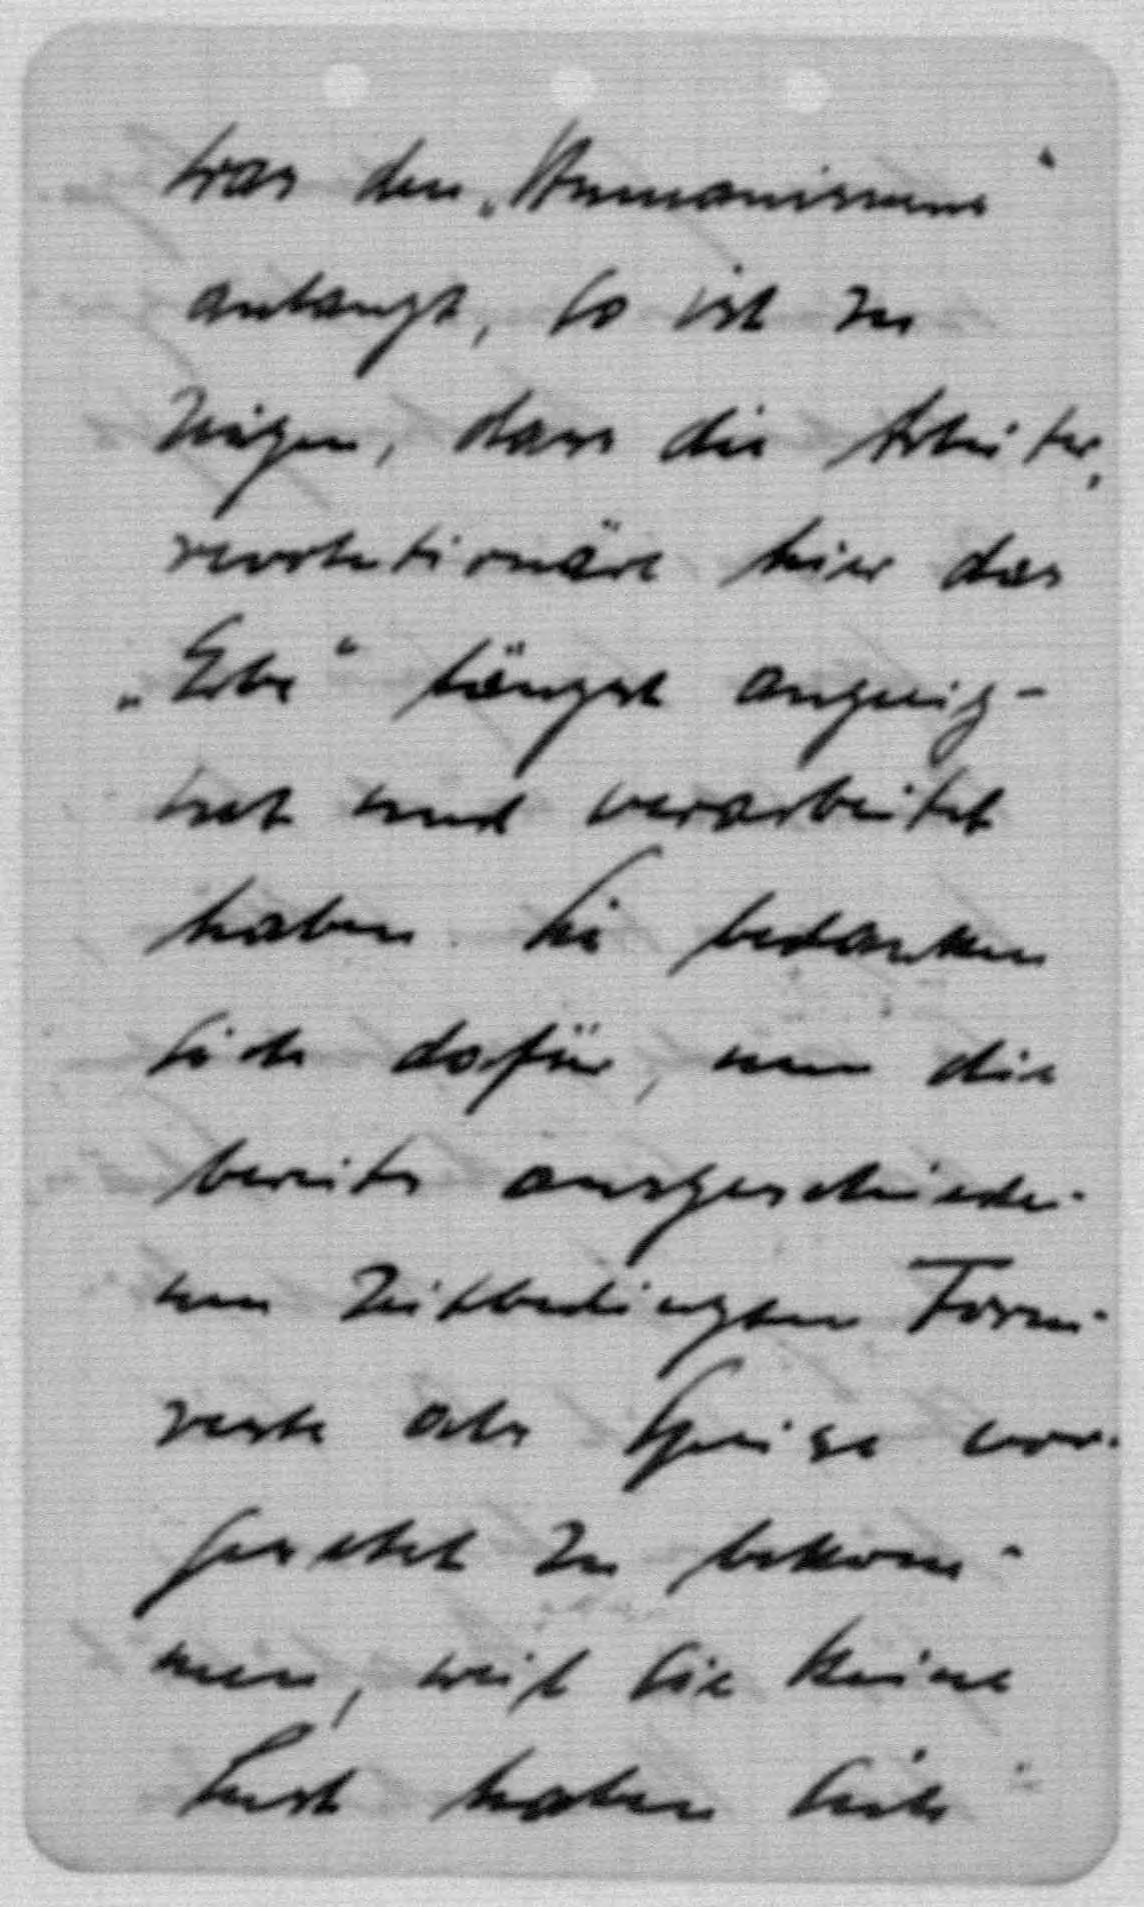 Was den „Humanismus“
anlangt, so ist zu
zeigen, dass die Arbeiter,
revolutionäre hier das
„Erbe“ längst angeeig-
net und verarbeitet
haben. Sie bedanken
sich dafür, nun die
bereits ausgeschiede-
nen zeitbedingten Form-
reste als Speise vor-
gesetzt zu bekom-
men, weil sie keine
Lust haben sich